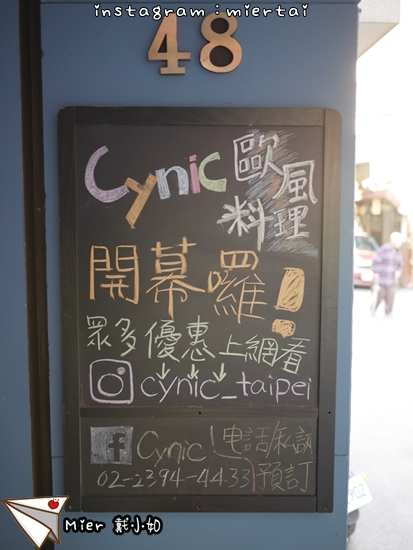 instagram : miertai
48
Cynic 歐風料理
開幕囉!
眾多優惠上網看
cynic_taipei
f Cynic 電話/私訊
02-2394-4433 預訂
Mier 戴小如